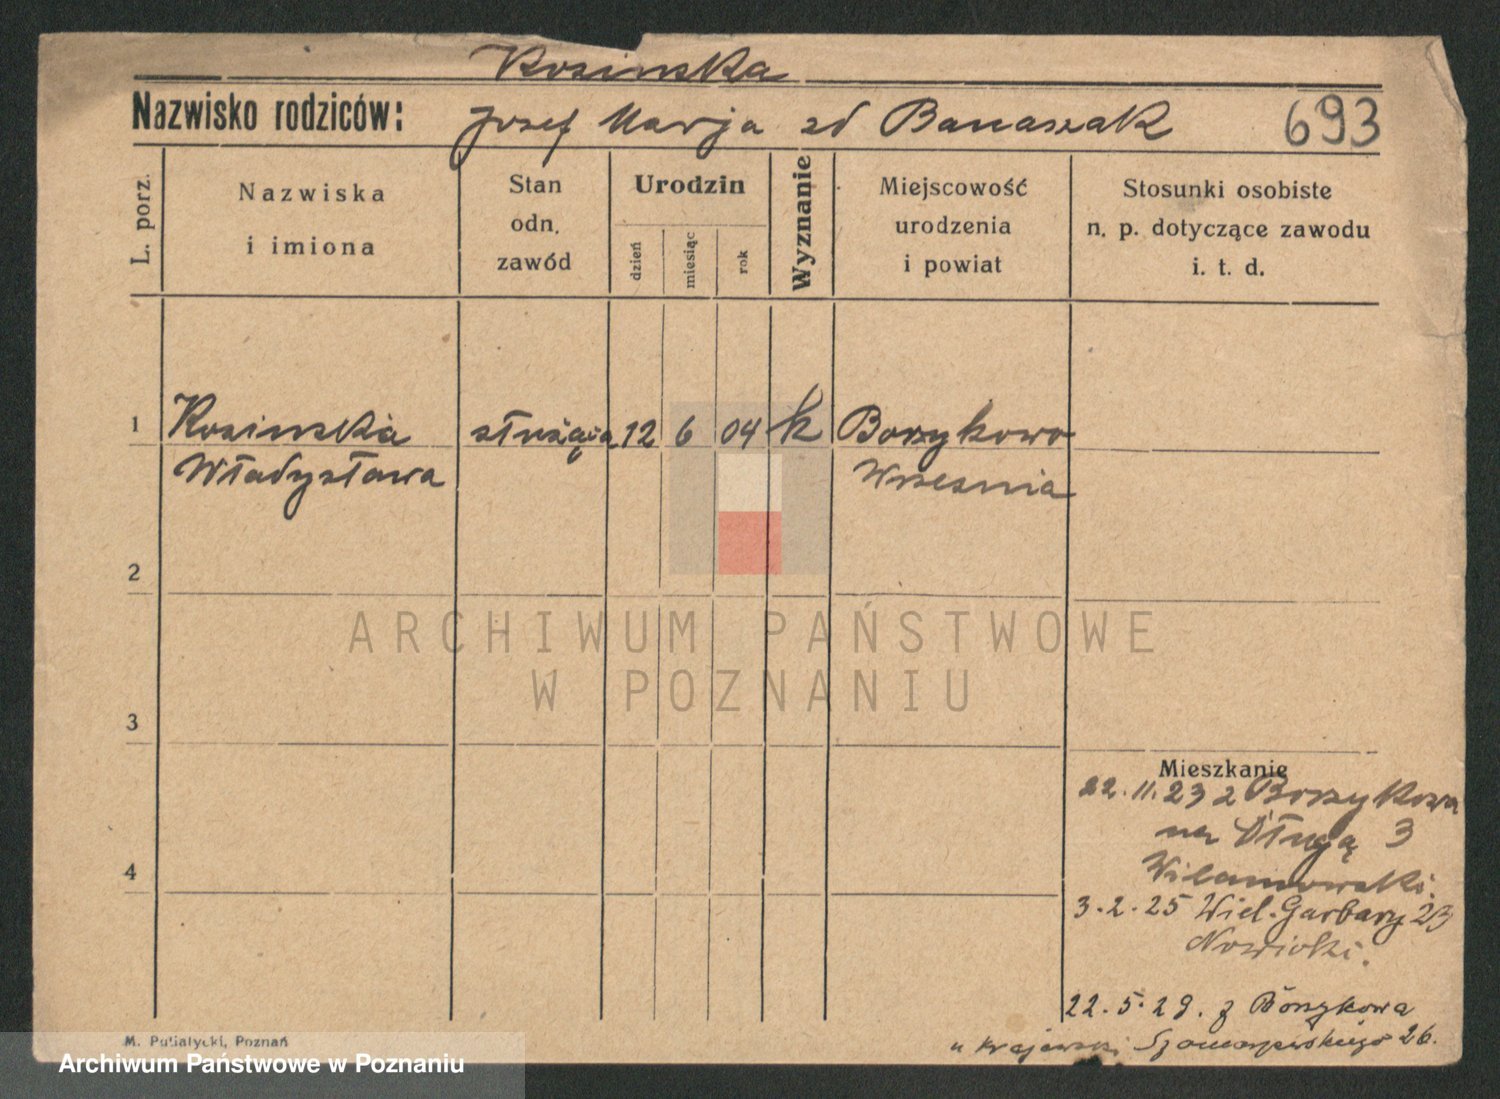 Kosinska
Nazwisko rodziców: Josef Marja zd Banaszak 693
L. porz.
Nazwiska
i imiona
Stan
odn.
zawód
Urodzin
dzień
miesiąc
rok
Wyznanie
Miejscowość
urodzenia
i powiat
Stosunki osobiste
n. p. dotyczące zawodu
i. t. d.
1 Kosinska służąca 12 6 04 k Borzykowo
Władysława Wrzesnia
2
ARCHIWUM PAŃSTWOWE
W POZNANIU
3
Mieszkanie
22.11.23 z Borzykowa
na Długą 3
4
3.2.25 Wiel. Garbary 23
22.5.29. z Borzykowa
u Krajewski 26.
M. Putiatycki, Poznań
Archiwum Państwowe w Poznaniu